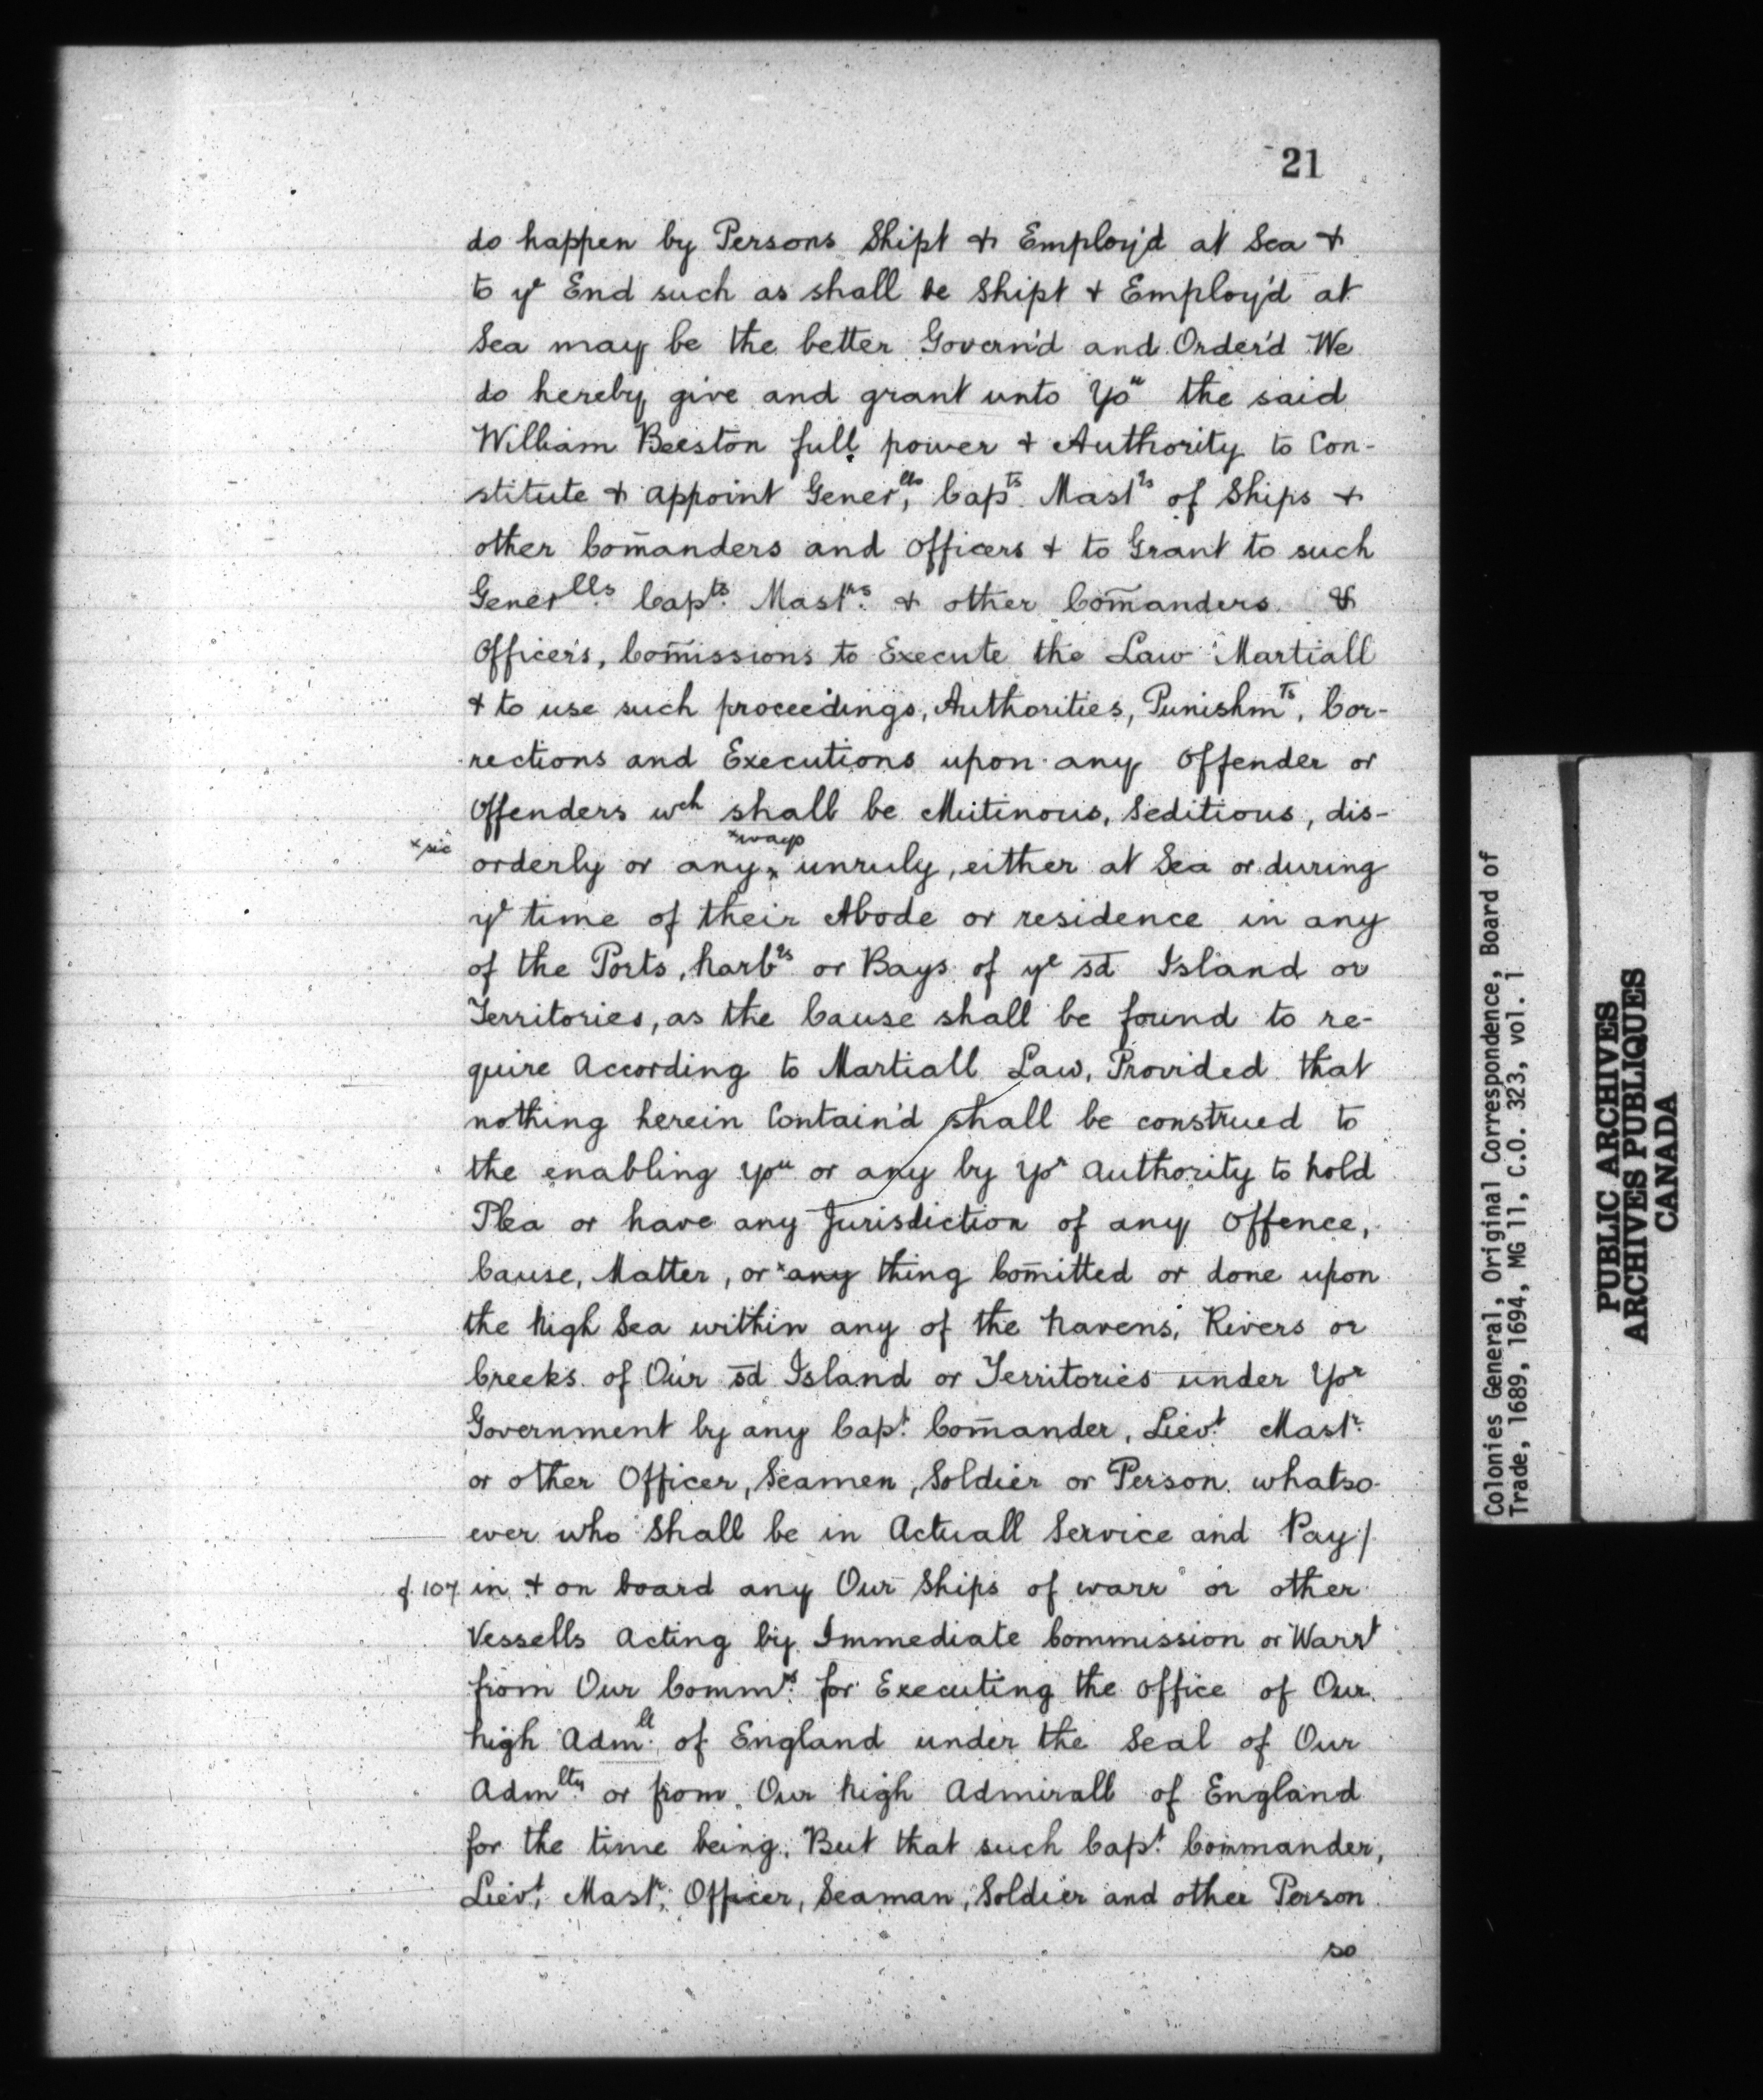 21
do happen by Persons Shipt & Employ'd at Sea &
to ye End such as shall be Shipt & Employ'd at
Sea may be the better Govern'd and Order'd We
do hereby give and grant unto You the said
William Beeston full power & Authority to Con-
stitute & appoint Generlls, Capts. Mastrs of Ships &
other Com̄anders and Officers & to Grant to such
Generlls. Capts. Mastrs. & other Com̄anders &
Officers, Com̄issions to Execute the Law Martiall
& to use such proceedings, Authorities, Punishmts, Cor-
rections and Executions upon any Offender or
Offenders wch shall be Mutinous, Seditious, dis-
xways
x"sic" orderly or any x unruly, either at Sea or during
ye time of their Abode or residence in any
of the Ports, harbrs or Bays of ye sd Island or
Territories, as the Cause shall be found to re-
quire According to Martiall Law, Provided that
nothing herein Contain'd shall be construed to
the enabling you or any by yor authority to hold
Plea or have any Jurisdiction of any Offence,
Cause, Matter, or xany thing Com̄itted or done upon
the high Sea within any of the havens, Rivers or
Creeks of Our sd Island or Territories under Yor
Government by any Capt. Com̄ander, Lievt. Mastr.
or other Officer, Seamen, Soldier or Person whatso-
ever who shall be in Actuall Service and Pay/
f. 107 in & on board any Our Ships of warr or other
Vessells Acting by Immediate Commission or Warrt
from Our Commrs. for Executing the office of Our
high Admll. of England under the Seal of Our
Admlty. or from Our high Admirall of England
for the time being. But that such Capt. Commander,
Lievt, Mastr, Officer, Seaman, Soldier and other Person
so
Colonies General, Original Correspondence, Board of
Trade, 1689, 1694, MG 11, C.O. 323, vol. 1
PUBLIC ARCHIVES
ARCHIVES PUBLIQUES
CANADA